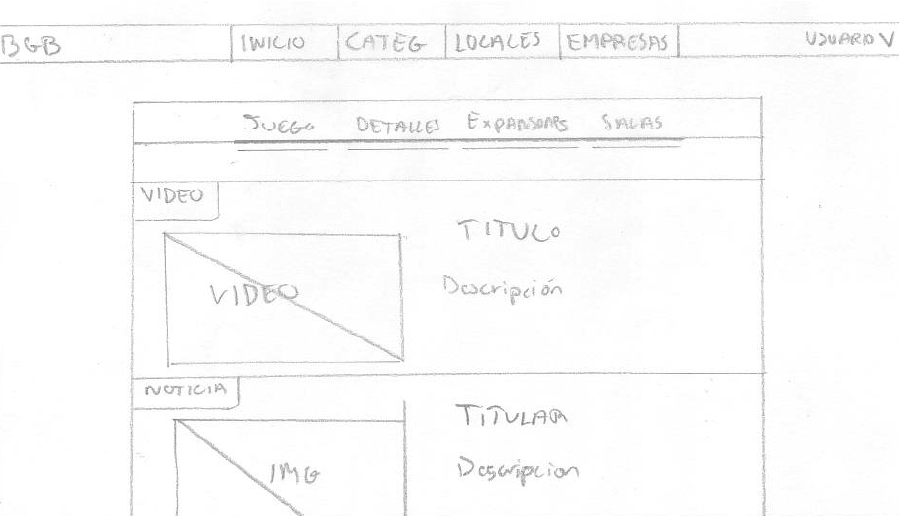 BGB INICIO CATEG LOCALES EMPRESAS USUARIO V
JUEGO DETALLES EXPANSIONES SALAS
VIDEO
TITULO
VIDEO
Descripción
NOTICIA
TITULAR
IMG
Descripcion